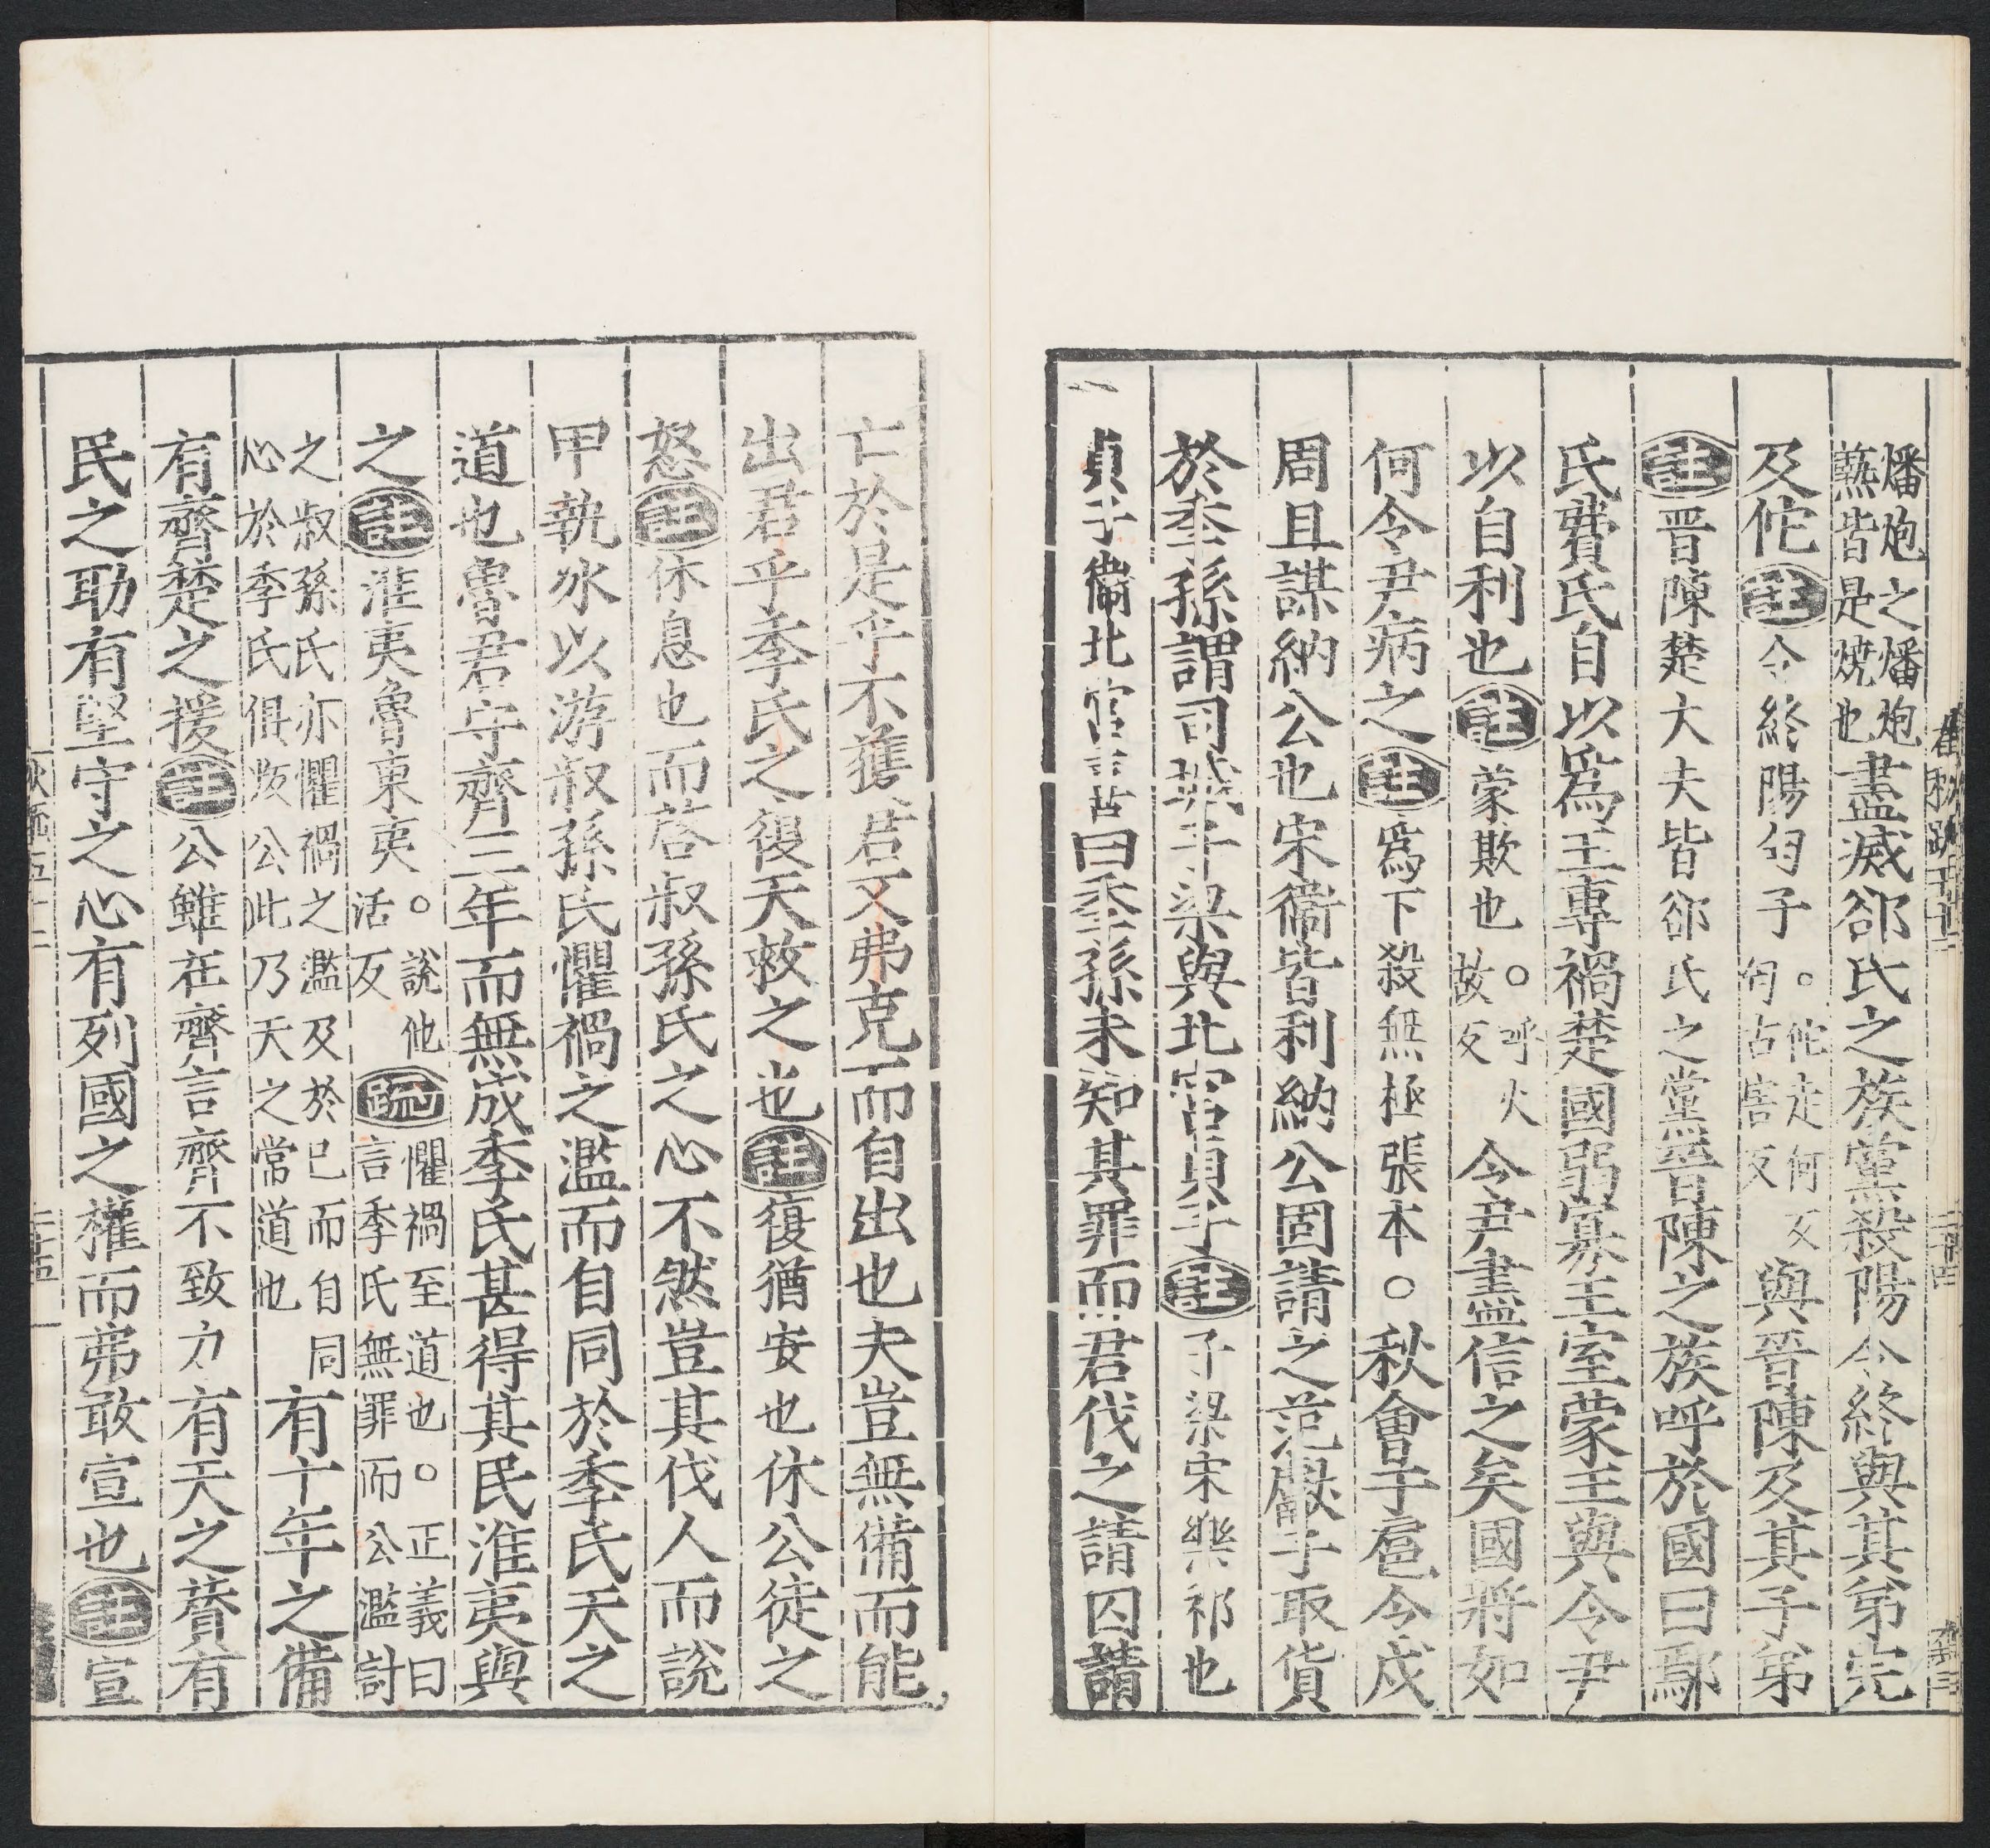 燔炮之燔炮
爇皆是燒也盡滅郤氏之族黨殺陽令終與其弟完
及佗註令終陽匄子。佗走何反匄古害反與晉陳及其子弟
註晉陳楚大夫皆郤氏之黨晉陳之族呼於國曰鄢
氏費氏自以爲王專禍楚國弱寡王室蒙王與令尹
以自利也註蒙欺也。呼火故反令尹盡信之矣國將如
何令尹病之註爲下殺無極張本。秋會于扈令戍
周且謀納公也宋衞皆利納公固請之范獻子取貨
於季孫謂司城子梁與北宮貞子註子梁宋樂祁也
貞子衞北宮喜曰季孫未知其罪而君伐之請囚請
亡於是乎不獲君又弗克而自出也夫豈無備而能
出君乎季氏之復天救之也註復猶安也休公徒之
怒註休息也而啓叔孫氏之心不然豈其伐人而說
甲執冰以游叔孫氏懼禍之濫而自同於季氏天之
道也魯君守齊三年而無成季氏甚得其民淮夷與
之註淮夷魯東夷。說他活反疏懼禍至道也。正義曰言季氏無罪而公濫討
之叔孫氏亦懼禍之濫及於已而自同
心於季氏俱叛公此乃天之常道也有十年之備
有齊楚之援註公雖在齊言齊不致力有天之賛有
民之助有堅守之心有列國之權而弗敢宣也註宣